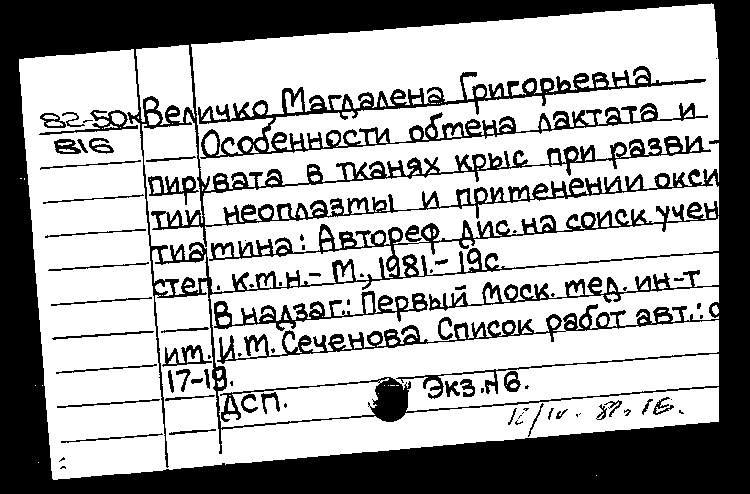 82-50к Величко, Магдалена Григорьевна.
В16 Особенности обмена лактата и
пирувата в тканях крыс при разви-
тии неоплазмы и применении окси
тиамина: Автореф. дис. на соиск. учен
степ. к.м.н.- М., 1981.- 19с.
В надзаг.: Первый Моск. мед. ин-т
им. И.М. Сеченова. Список работ авт.: с
17-19.
ДСП. Экз. №6.